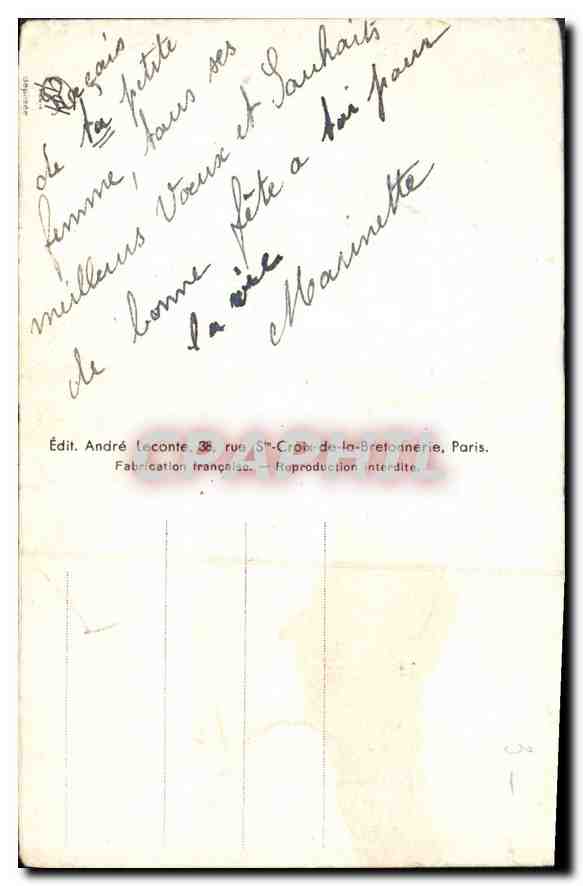 Reçais
de ta petite
femme, tous ses
meilleurs Voeux et Souhaits
de bonne fête a toi pour
la vie
Marinette
Édit. André Leconte, 38, rue Ste-Croix-de-la-Bretonnerie, Paris.
Fabrication française. — Reproduction interdite.
CPAPHIL